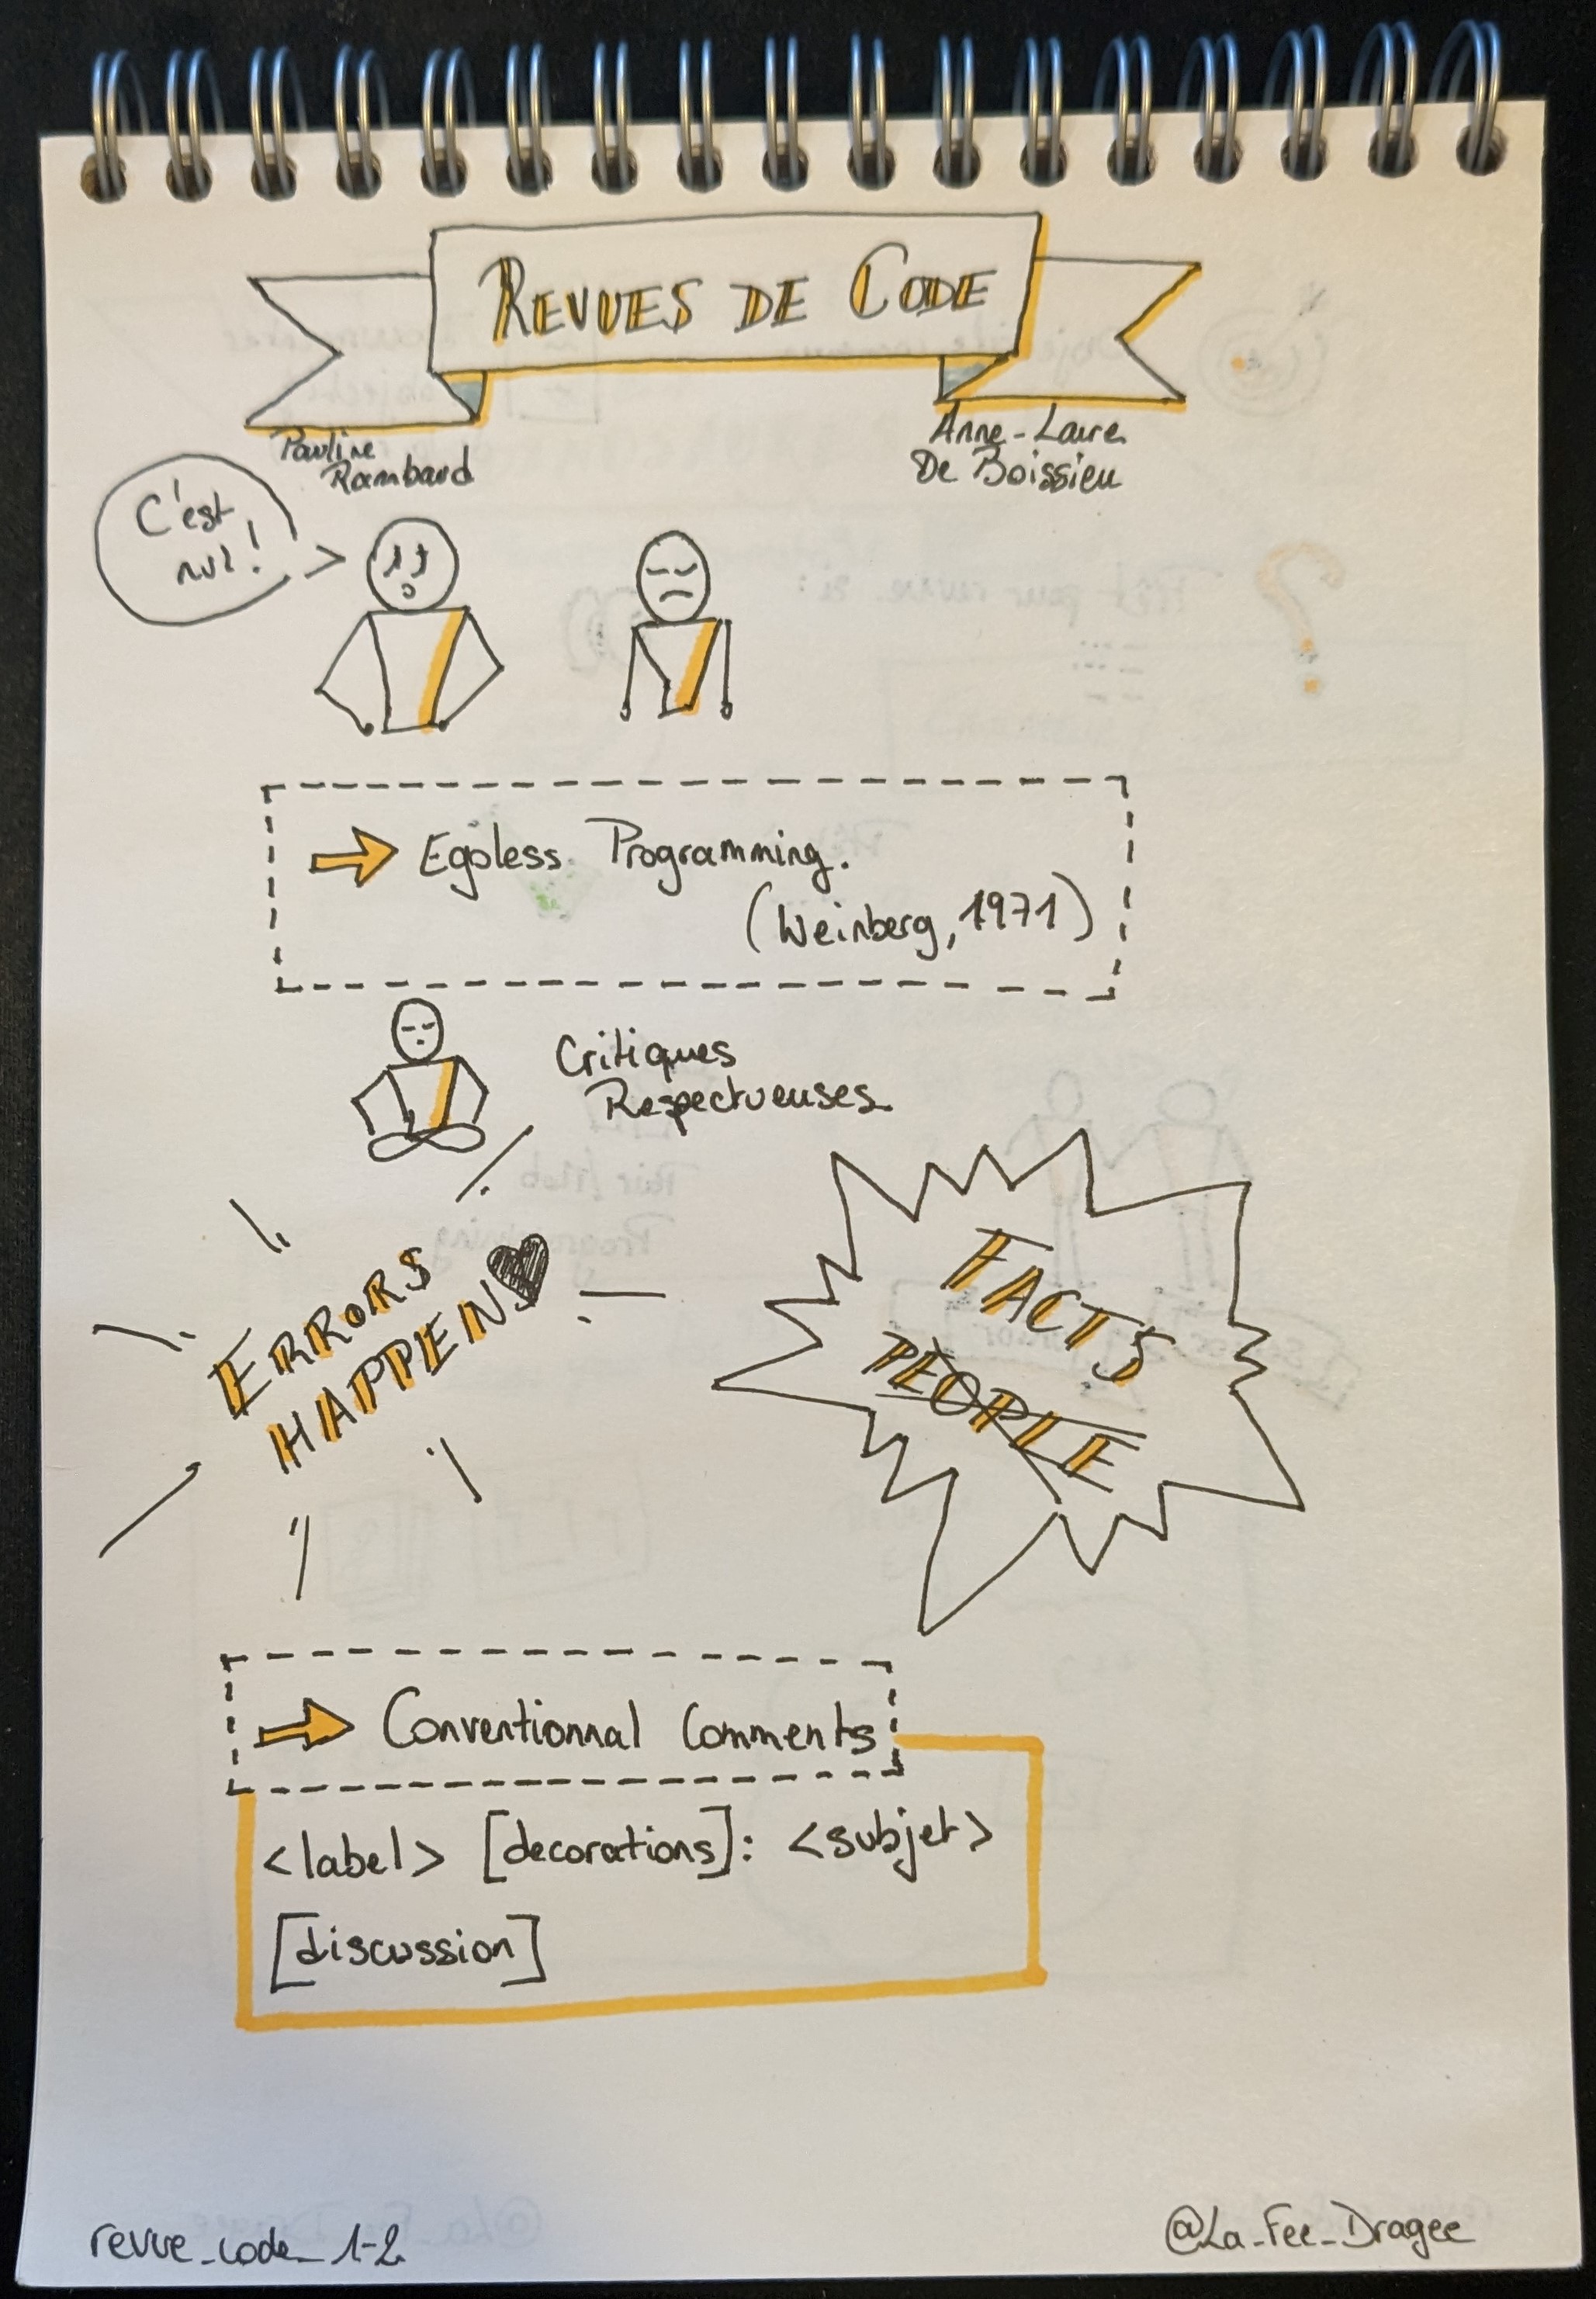 REVUES DE CODE
Pauline
Rambaud
Anne-Laure
De Boissieu
C'est
nul!
Egoless Programming.
(Weinberg, 1971)
Critiques
Respectueuses
ERRORS
HAPPENS
FACTS
PEOPLE
Conventionnal Comments
<label> [decorations]: <subjet>
[discussion]
revue_code_1-2
@La_Fee_Dragee